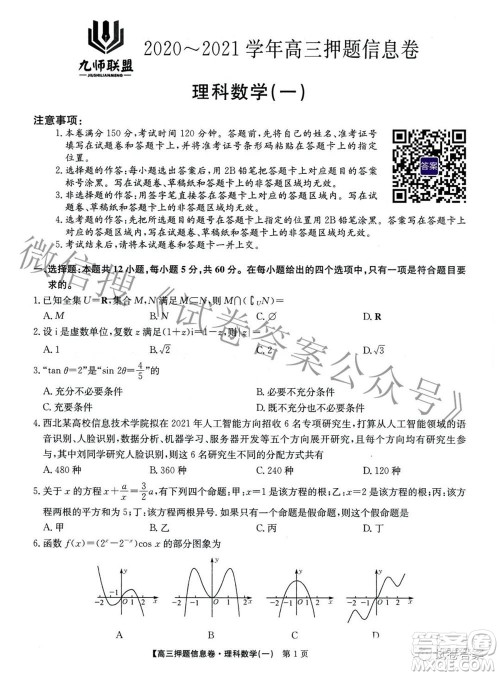 九师联盟
JIUSHILIANMENG
2020～2021学年高三押题信息卷
理科数学(一)
注意事项:
1.本卷满分150分,考试时间120分钟。答题前,先将自己的姓名、准考证号
填写在试题卷和答题卡上,并将准考证号条形码粘贴在答题卡上的指定位置。
2.选择题的作答:每小题选出答案后,用2B铅笔把答题卡上对应题目的答案
标号涂黑。写在试题卷、草稿纸和答题卡上的非答题区域均无效。
3.非选择题的作答:用签字笔直接答在答题卡上对应的答题区域内。写在试
题卷、草稿纸和答题卡上的非答题区域均无效。
4.选考题的作答:先把所选题目的题号在答题卡上指定的位置用2B铅笔涂
黑。答案写在答题卡上对应的答题区域内,写在试题卷、草稿纸和答题卡上
的非答题区域均无效。
5.考试结束后,请将本试题卷和答题卡一并上交。
答案
一、选择题:本题共12小题,每小题5分,共60分。在每小题给出的四个选项中,只有一项是符合题目要
求的。
1.已知全集U=R,集合M,N满足M⊆N,则M∩(∁UN)=
A.M B.N C.∅ D.R
2.设i是虚数单位,复数z满足(1+z)i=1-z,则|z|=
A.1 B.√2 C.2 D.√3
3.“tan θ=2”是“sin 2θ=4/5”的
A.充分不必要条件 B.必要不充分条件
C.充要条件 D.既不充分也不必要条件
4.西北某高校信息技术学院拟在2021年人工智能方向招收6名专项研究生,打算从人工智能领域的语
音识别、人脸识别、数据分析、机器学习、服务器开发五个方向展开研究,且每个方向均有研究生学
习,其中刘同学研究人脸识别,则这6名研究生不同的分配方向共有
A.480种 B.360种 C.240种 D.120种
5.关于x的方程x+a/x=3/2a,有下列四个命题:甲:x=1是方程的一个根;乙:x=4是方程的一个根;
丙:该方程两根之和为3;丁:该方程两根异号.如果只有一个命题是假命题,则假命题是
A.甲 B.乙 C.丙 D.丁
6.函数f(x)=(2ˣ-2⁻ˣ)cos x的部分图象为
A B C D
【高三押题信息卷·理科数学(一) 第1页】
微信搜《试卷答案公众号》